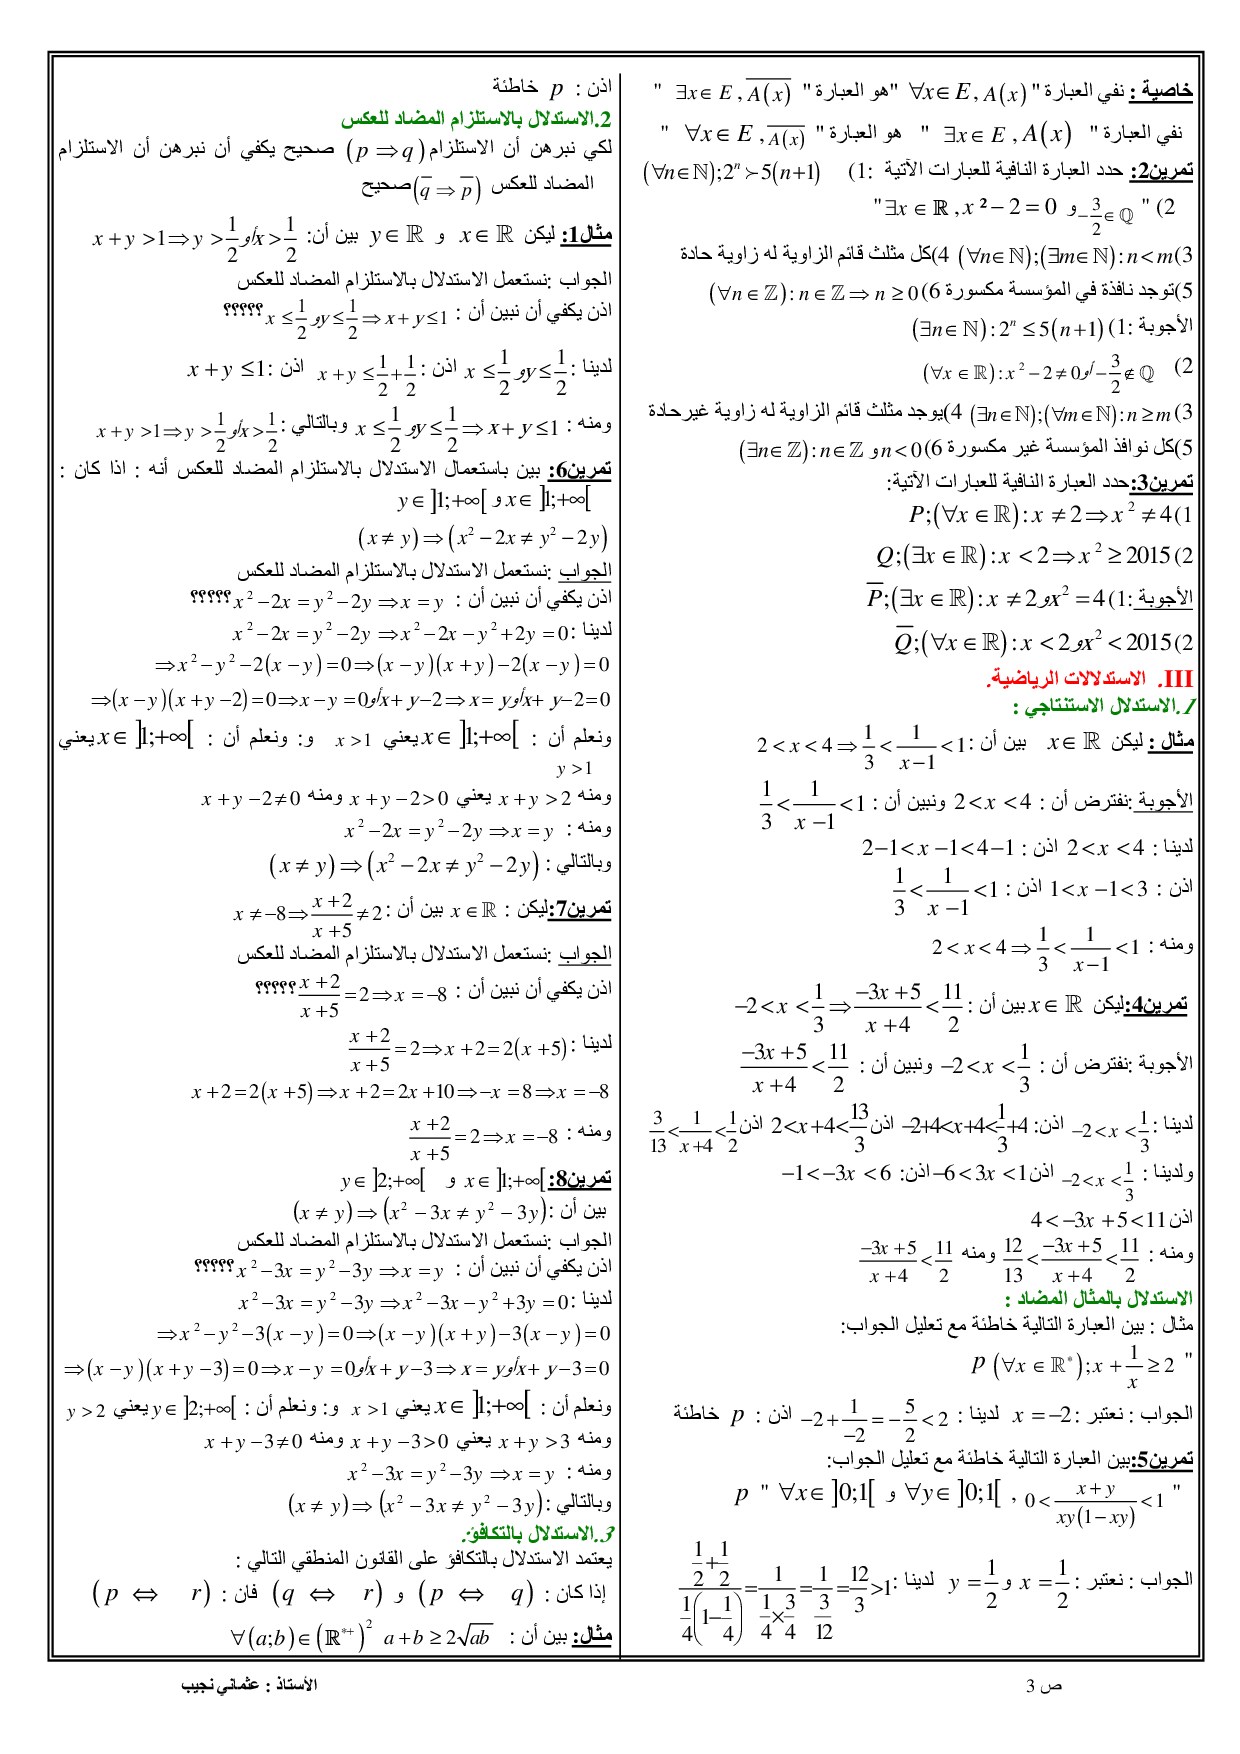 خاصية : نفي العبارة " ∀x∈E, A(x) " هو العبارة " ∃x∈E, \overline{A(x)} "
نفي العبارة " ∃x∈E, A(x) " هو العبارة " ∀x∈E, \overline{A(x)} "
تمرين2: حدد العبارة النافية للعبارات الآتية :1) (∀n∈ℕ);2^n ≻ 5(n+1)
2) " -3/2 ∈ ℚ و ∃x∈ℝ, x²-2=0 "
3) (∀n∈ℕ);(∃m∈ℕ): n<m 4)كل مثلث قائم الزاوية له زاوية حادة
5)توجد نافذة في المؤسسة مكسورة 6) (∀n∈ℤ): n∈ℤ ⇒ n≥0
الأجوبة :1) (∃n∈ℕ): 2^n ≤ 5(n+1)
2) -3/2 ∉ ℚ أو (∀x∈ℝ): x²-2≠0
3) (∃n∈ℕ);(∀m∈ℕ): n≥m 4)يوجد مثلث قائم الزاوية له زاوية غيرحادة
5)كل نوافذ المؤسسة غير مكسورة 6) (∃n∈ℤ): n∈ℤ و n<0
تمرين3:حدد العبارة النافية للعبارات الآتية:
1) P;(∀x∈ℝ): x≠2 ⇒ x²≠4
2) Q;(∃x∈ℝ): x<2 ⇒ x²≥2015
الأجوبة :1) \overline{P};(∃x∈ℝ): x≠2 و x²=4
2) \overline{Q};(∀x∈ℝ): x<2 و x²<2015
III. الاستدلالات الرياضية.
1.الاستدلال الاستنتاجي :
مثال : ليكن x∈ℝ بين أن : 2<x<4 ⇒ 1/3 < 1/(x-1) < 1
الأجوبة :نفترض أن : 2<x<4 ونبين أن : 1/3 < 1/(x-1) < 1
لدينا : 2<x<4 اذن : 2-1<x-1<4-1
اذن : 1<x-1<3 اذن : 1/3 < 1/(x-1) < 1
ومنه : 2<x<4 ⇒ 1/3 < 1/(x-1) < 1
تمرين4:ليكن x∈ℝ بين أن : -2<x<1/3 ⇒ (-3x+5)/(x+4) < 11/2
الأجوبة :نفترض أن : -2<x<1/3 ونبين أن : (-3x+5)/(x+4) < 11/2
لدينا : -2<x<1/3 اذن: -2+4<x+4<1/3+4 اذن 2<x+4<13/3 اذن 3/13 < 1/(x+4) < 1/2
ولدينا : -2<x<1/3 اذن -6<3x<1 اذن: -1<-3x<6
اذن 4<-3x+5<11
ومنه : 12/13 < (-3x+5)/(x+4) < 11/2 ومنه (-3x+5)/(x+4) < 11/2
الاستدلال بالمثال المضاد :
مثال : بين العبارة التالية خاطئة مع تعليل الجواب:
" p (∀x∈ℝ*); x+1/x ≥ 2
الجواب : نعتبر : x=-2 لدينا : -2+1/(-2) = -5/2 < 2 اذن : p خاطئة
تمرين5:بين العبارة التالية خاطئة مع تعليل الجواب:
p " ∀x∈]0;1[ و ∀y∈]0;1[ , 0 < (x+y)/(xy(1-xy)) < 1 "
الجواب : نعتبر : x=1/2 و y=1/2 لدينا : (1/2+1/2)/(1/4(1-1/4)) = 1/(1/4×3/4) = 1/(3/12) = 12/3 >1
اذن : p خاطئة
2.الاستدلال بالاستلزام المضاد للعكس
لكي نبرهن أن الاستلزام (p⇒q) صحيح يكفي أن نبرهن أن الاستلزام
المضاد للعكس (\overline{q}⇒\overline{p}) صحيح
مثال1: ليكن x∈ℝ و y∈ℝ بين أن: x+y>1 ⇒ y>1/2 أو x>1/2
الجواب :نستعمل الاستدلال بالاستلزام المضاد للعكس
اذن يكفي أن نبين أن : x≤1/2 و y≤1/2 ⇒ x+y≤1 ؟؟؟؟؟
لدينا : x≤1/2 و y≤1/2 اذن : x+y≤1/2+1/2 اذن : x+y≤1
ومنه : x≤1/2 و y≤1/2 ⇒ x+y≤1 وبالتالي : x+y>1 ⇒ y>1/2 أو x>1/2
تمرين6: بين باستعمال الاستدلال بالاستلزام المضاد للعكس أنه : اذا كان :
x∈]1;+∞[ و y∈]1;+∞[
(x≠y) ⇒ (x²-2x≠y²-2y)
الجواب :نستعمل الاستدلال بالاستلزام المضاد للعكس
اذن يكفي أن نبين أن : x²-2x=y²-2y ⇒ x=y ؟؟؟؟؟
لدينا : x²-2x=y²-2y ⇒ x²-2x-y²+2y=0
⇒ x²-y²-2(x-y)=0 ⇒ (x-y)(x+y)-2(x-y)=0
⇒ (x-y)(x+y-2)=0 ⇒ x-y=0 أو x+y-2 ⇒ x=y أو x+y-2=0
ونعلم أن : x∈]1;+∞[ يعني x>1 و: ونعلم أن : x∈]1;+∞[ يعني
y>1
ومنه x+y>2 يعني x+y-2>0 ومنه x+y-2≠0
ومنه : x²-2x=y²-2y ⇒ x=y
وبالتالي : (x≠y) ⇒ (x²-2x≠y²-2y)
تمرين7:ليكن : x∈ℝ بين أن : x≠-8 ⇒ (x+2)/(x+5) ≠ 2
الجواب :نستعمل الاستدلال بالاستلزام المضاد للعكس
اذن يكفي أن نبين أن : (x+2)/(x+5)=2 ⇒ x=-8 ؟؟؟؟؟
لدينا : (x+2)/(x+5)=2 ⇒ x+2=2(x+5)
x+2=2(x+5) ⇒ x+2=2x+10 ⇒ -x=8 ⇒ x=-8
ومنه : (x+2)/(x+5)=2 ⇒ x=-8
تمرين8: x∈]1;+∞[ و y∈]2;+∞[
بين أن : (x≠y) ⇒ (x²-3x≠y²-3y)
الجواب :نستعمل الاستدلال بالاستلزام المضاد للعكس
اذن يكفي أن نبين أن : x²-3x=y²-3y ⇒ x=y ؟؟؟؟؟
لدينا : x²-3x=y²-3y ⇒ x²-3x-y²+3y=0
⇒ x²-y²-3(x-y)=0 ⇒ (x-y)(x+y)-3(x-y)=0
⇒ (x-y)(x+y-3)=0 ⇒ x-y=0 أو x+y-3 ⇒ x=y أو x+y-3=0
ونعلم أن : x∈]1;+∞[ يعني x>1 و: ونعلم أن : y∈]2;+∞[ يعني y>2
ومنه x+y>3 يعني x+y-3>0 ومنه x+y-3≠0
ومنه : x²-3x=y²-3y ⇒ x=y
وبالتالي : (x≠y) ⇒ (x²-3x≠y²-3y)
3.الاستدلال بالتكافؤ:
يعتمد الاستدلال بالتكافؤ على القانون المنطقي التالي :
إذا كان : (p ⇔ q) و (q ⇔ r) فان : (p ⇔ r)
مثال: بين أن : ∀(a;b)∈(ℝ*⁺)² a+b≥2√ab
ص 3
الأستاذ : عثماني نجيب